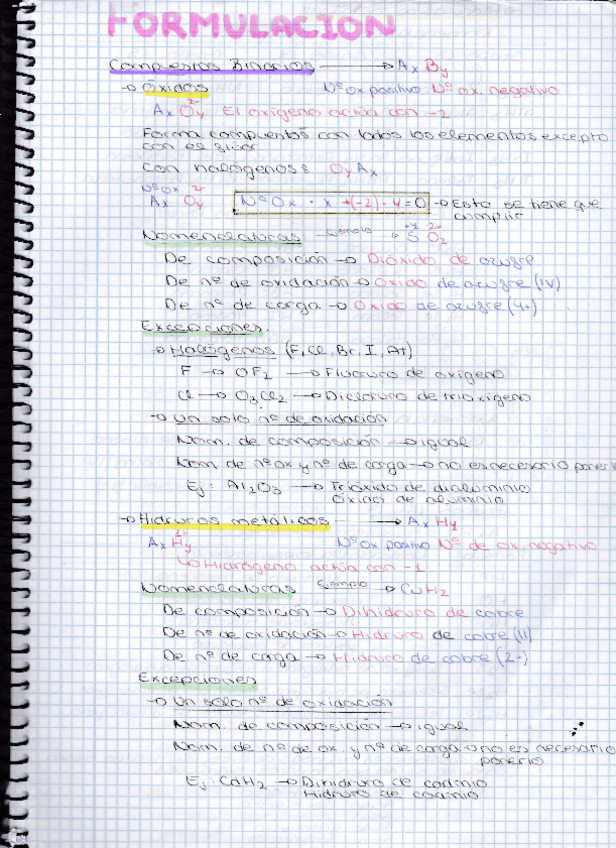 FORMULACION
Compuestos Binarios → Ax By
→ Óxidos Nº ox positivo Nº ox. negativo
Ax Oy 2- El oxígeno actúa con -2
Forma compuestos con todos los elementos excepto
con el flúor
Con halógenos: OyAx
Nº Ox 2-
Ax Oy Nº Ox · x + (-2) · y = 0 → Esto se tiene que
cumplir
Nomenclaturas Ejemplo → +4 2-
S O2
De composición → Dióxido de azufre
De nº de oxidación → Óxido de azufre (IV)
De nº de carga → Óxido de azufre (4+)
Excepciones.
→ Halógenos (F, Cl, Br, I, At)
F → OF2 → Fluoruro de oxígeno
Cl → O3Cl2 → Dicloruro de trioxígeno
→ Un solo nº de oxidación
Nom. de composición → igual
Nom de nº ox y nº de carga → no es necesario ponerl
Ej: Al2O3 → Trióxido de dialuminio
Óxido de aluminio
→ Hidruros metálicos → Ax Hy
Ax Hy 1- Nº ox positivo Nº de ox. negativo
↳ Hidrógeno actúa con -1
Nomenclaturas Ejemplo → CuH2
De composición → Dihidruro de cobre
De nº de oxidación → Hidruro de cobre (II)
De nº de carga → Hidruro de cobre (2+)
Excepciones
→ Un solo nº de oxidación
Nom. de composición → igual
Nom. de nº de ox. y nº de carga → no es necesario
ponerlo
Ej: CdH2 → Dihidruro de cadmio
Hidruro de cadmio